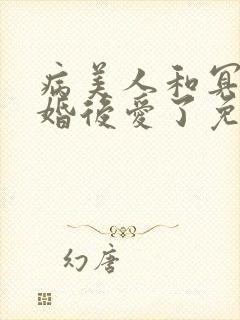 病美人和冥
婚後愛了免
幻唐